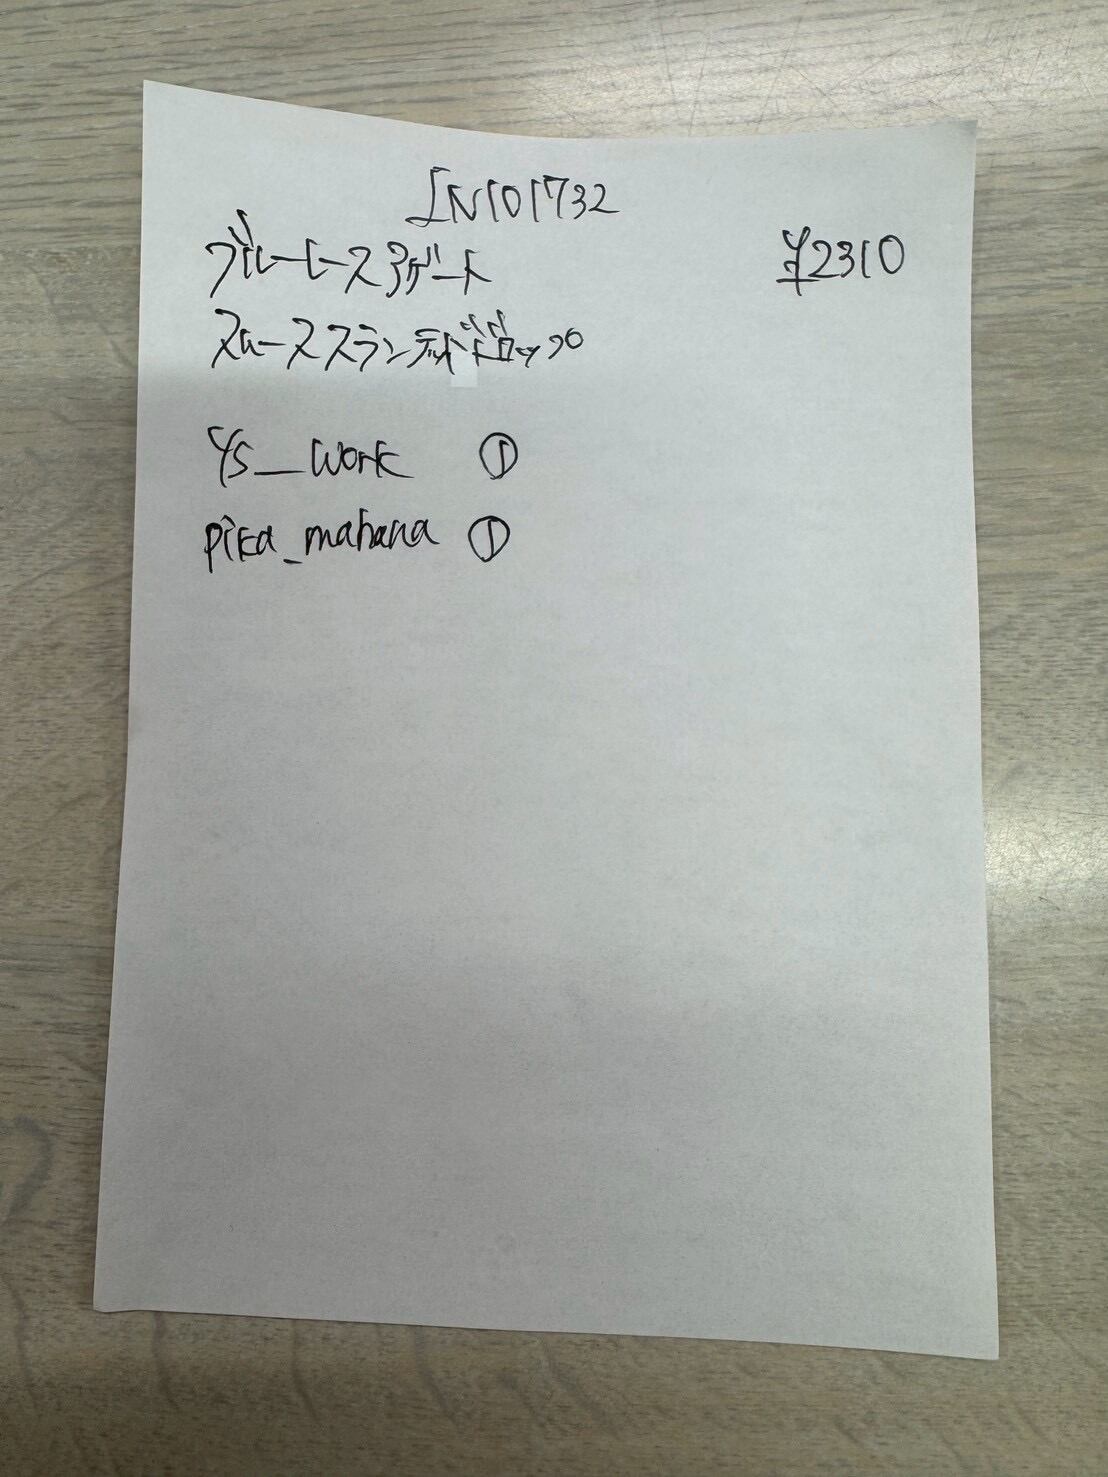 IN101732
ブルーレースアゲート
¥2310
スムーススランテッドドロップ
ys_work ①
pika_mahana ①